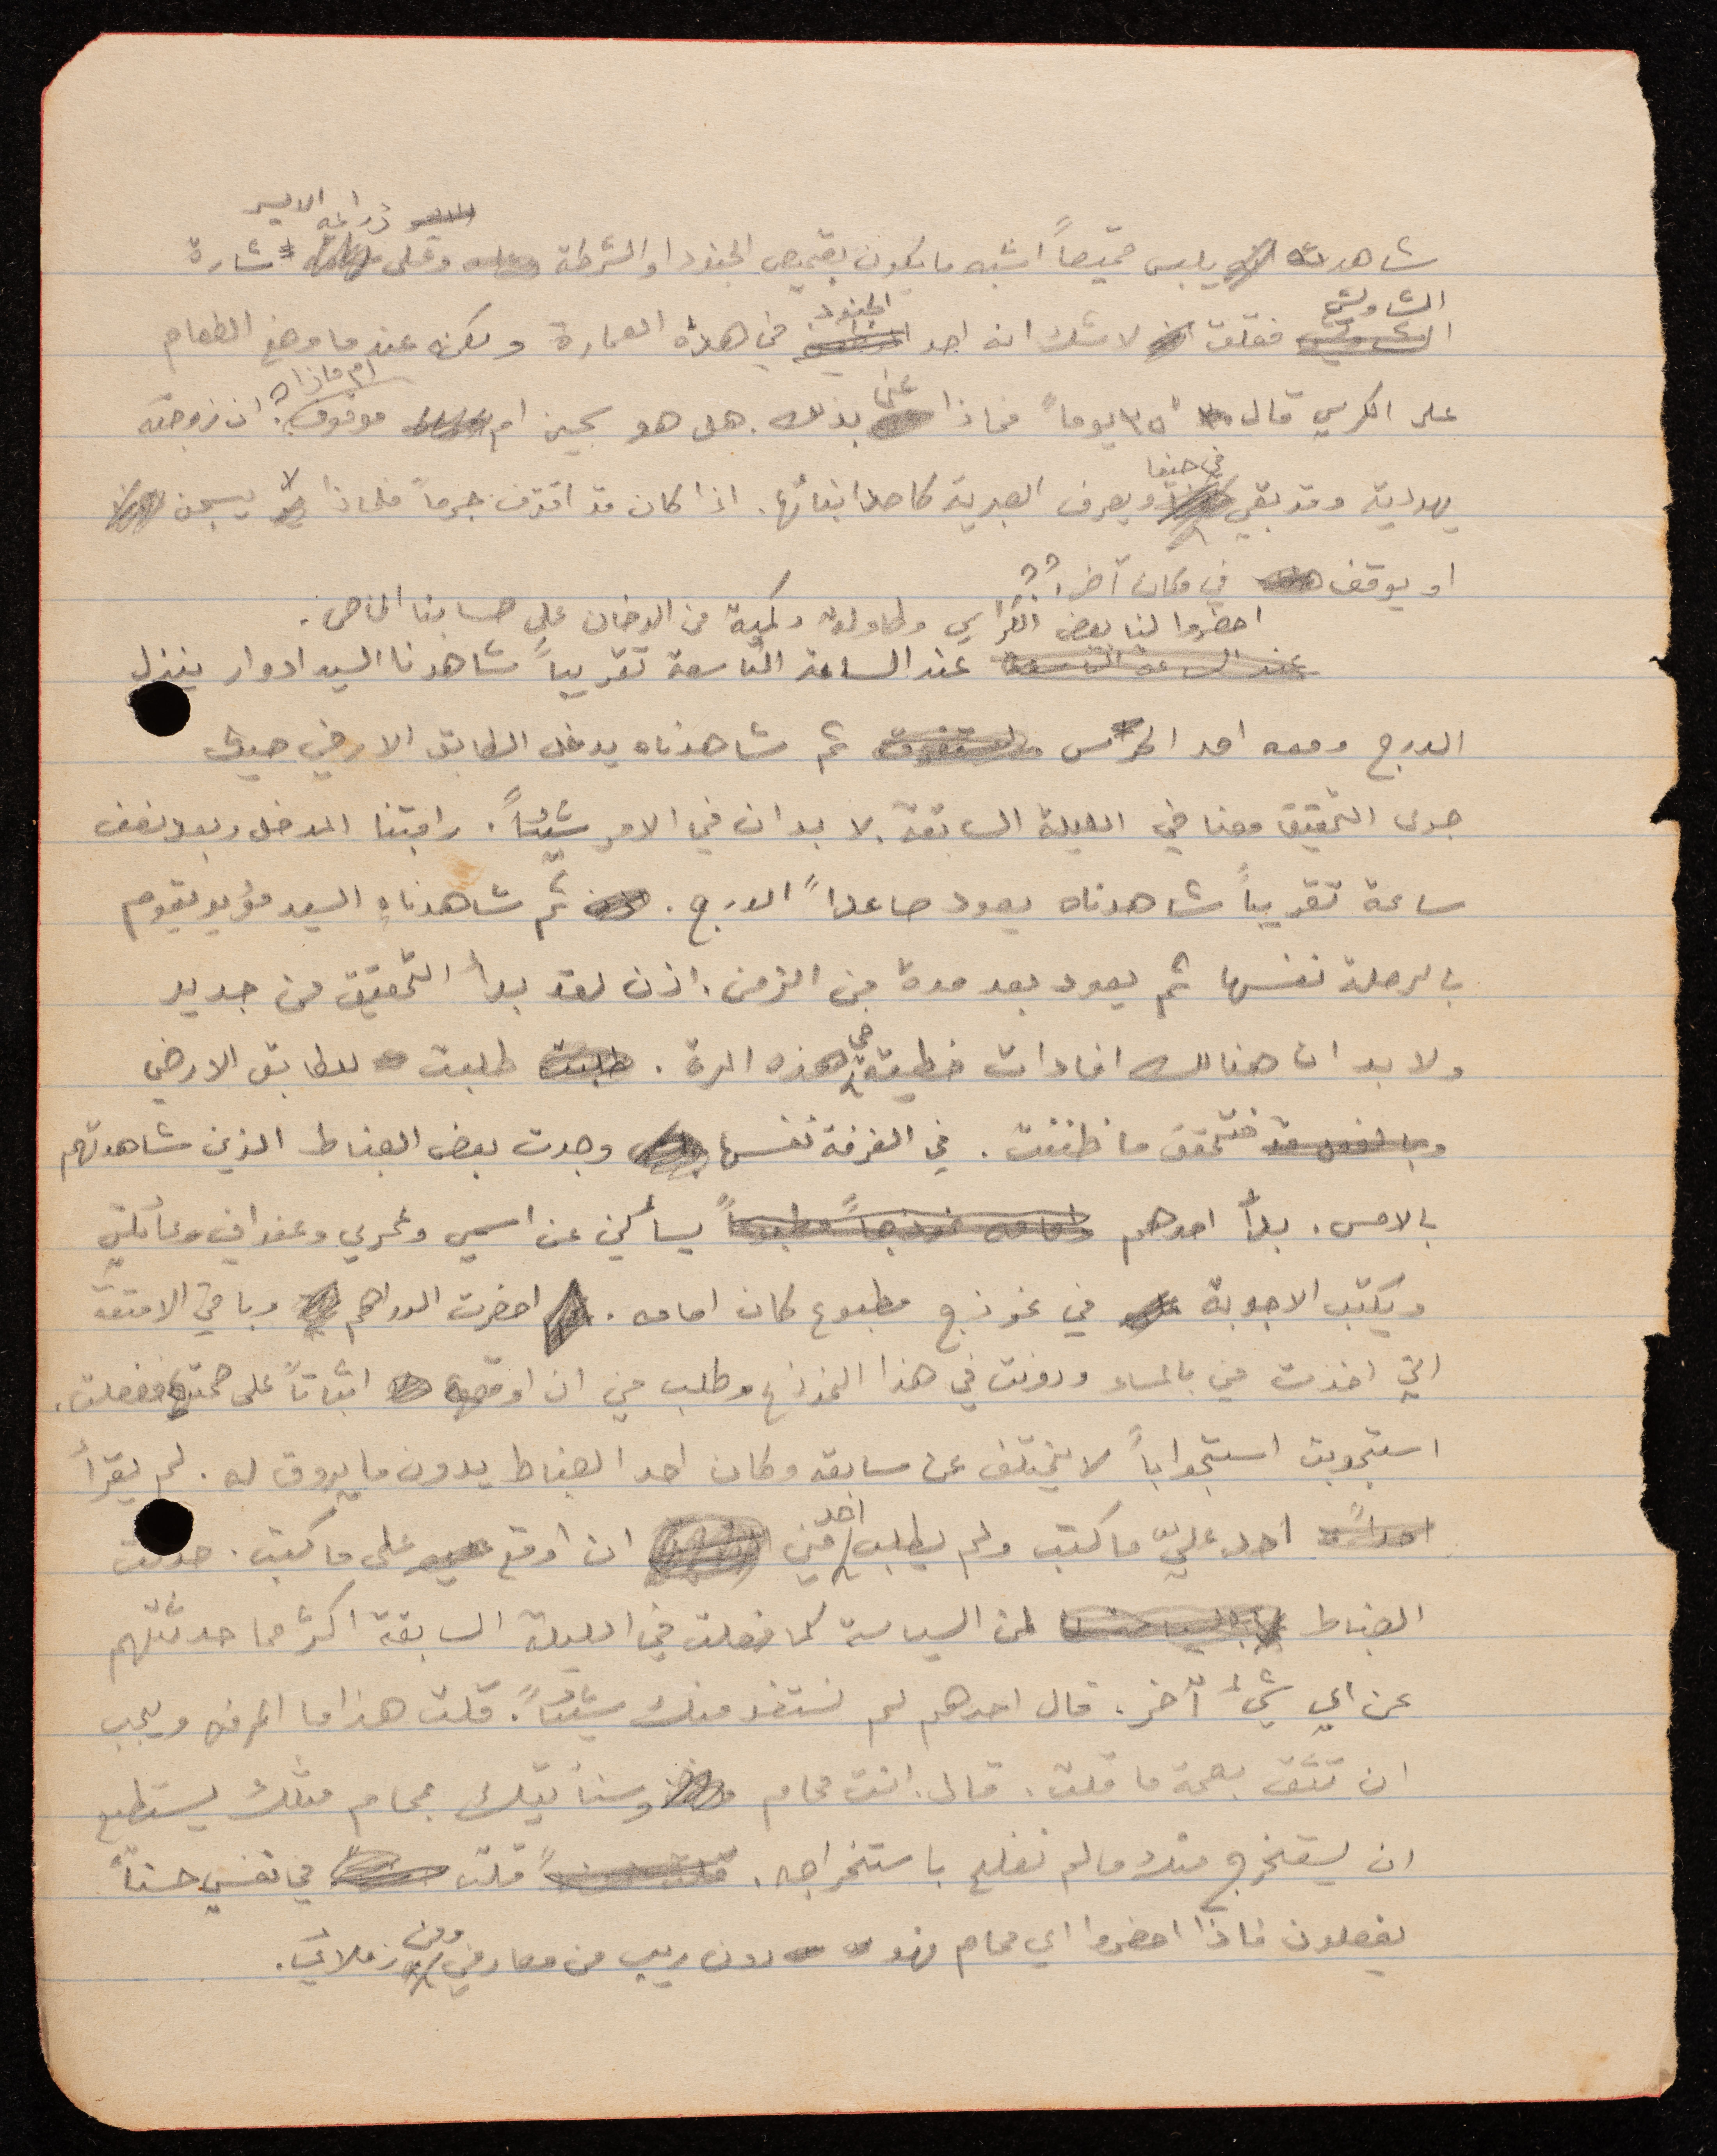 شاهدته يلبس قميصاً اشبه ما يكون بقميص الجنود او الشرطة وعلى ذراعه الايسر شارة
الشاويش فقلت لا شك انه احد الجنود في هذه العمارة ولكنه عندما وضع الطعام
على الكرسي قال ٣٥ يوماً فماذا عنى بذلك. هل هو سجين ام موقوف ام ماذا؟ ان زوجته
يهودية وقد بقي في حيفا ويعرف العبرية كاحد ابنائها. اذا كان قد اقترف جرماً فلماذا لا يسجن
او يوقف في مكان آخر؟؟
احضروا لنا بعض الكراسي وطاولة وكمية من الدخان على حسابنا الخاص.
عند الساعة التاسعة عند الساعة التاسعة تقريباً شاهدنا السيد ادوار ينزل
الدرج ومعه احد الحرس ثم شاهدناه يدخل الطابق الارضي حيث
جرى التحقيق معنا في الليلة السابقة. لا بد ان في الامر شيئاً. راقبنا المدخل وبعد نصف
ساعة تقريباً شاهدناه يعود صاعداً الدرج. ثم شاهدنا السيد مؤيد يقوم
بالرحلة نفسها ثم يعود بعد مدة من الزمن. اذن لقد بدأ التحقيق من جديد
ولا بد ان هنالك افادات خطية في هذه المرة. طلبت طلبت للطابق الارضي
وبالفعل قد فتحقق ما ظننت. في الغرفة نفسها وجدت بعض الضباط الذين شاهدتهم
بالامس. بدأ احدهم وامامه نموذجاً مطبوعاً يسألني عن اسمي وعمري وعنواني وعائلتي
ويكتب الاجوبة في نموذج مطبوع كان امامه. احضرت الدراهم وباقي الامتعة
التي اخذت مني بالمساء ودونت في هذا النموذج وطلب مني ان اوقع اثباتاً على صحتها ففعلت.
استجوبت استجواباً لا يختلف عن سابقه وكان احد الضباط يدون ما يروق له. لم يقرأ
احداً احد عليّ ما كتب ولم يطلب احد مني ان اوقع على ما كتب. حدثت
الضباط عن السياسة كما فعلت في الليلة السابقة اكثر مما حدثتهم
عن اي شيء آخر. قال احدهم لم نستفد منك شيئاً. قلت هذا ما اعرفه ويجب
ان تثق بصحة ما قلت. قال. انت محام وسنأتيك بمحام مثلك يستطيع
ان يستخرج منك ما لم نفلح باستخراجه. قلت في نفسي حسناً
يفعلون فاذا احضروا اي محام فهو دون ريب من معارفي ومن زملائي.